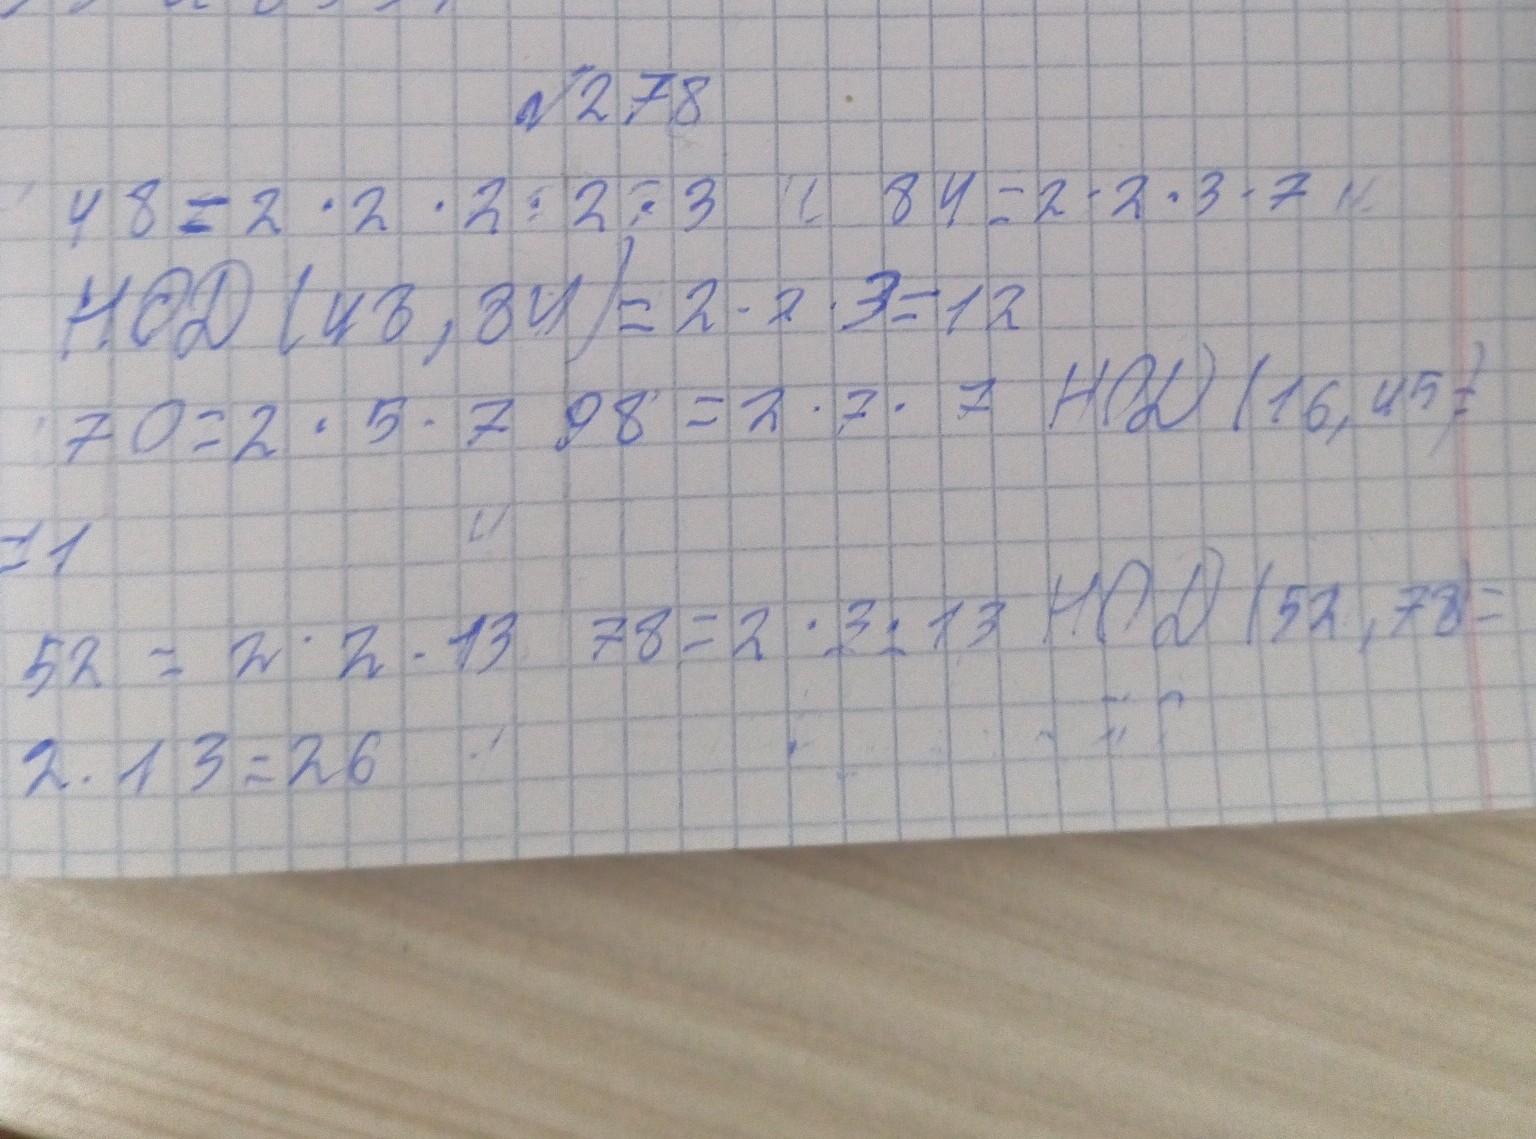 №278
48=2·2·2·2·3 и 84=2·2·3·7
НОД(48,84)=2·2·3=12
70=2·5·7 98=2·7·7 НОД(16,45)=
=1
52=2·2·13 78=2·3·13 НОД(52,78)=
2·13=26